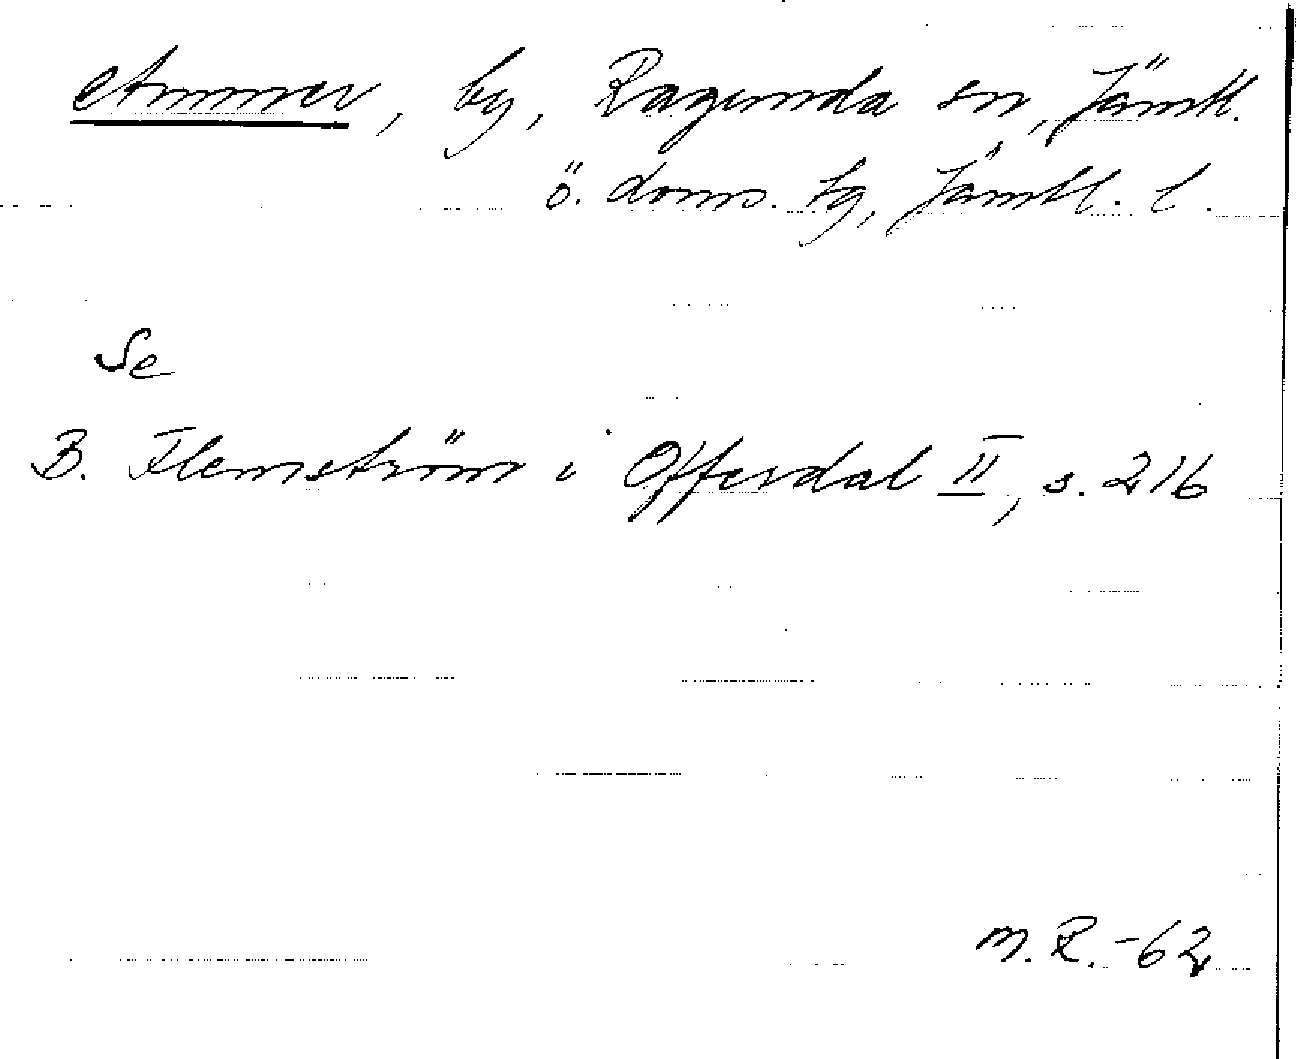 Ammer, by, Ragunda sn, Jämtl.
ö. doms. tg, Jämtl. l.
Se
B. Flemström i Offerdal II, s. 216
M. R. -62